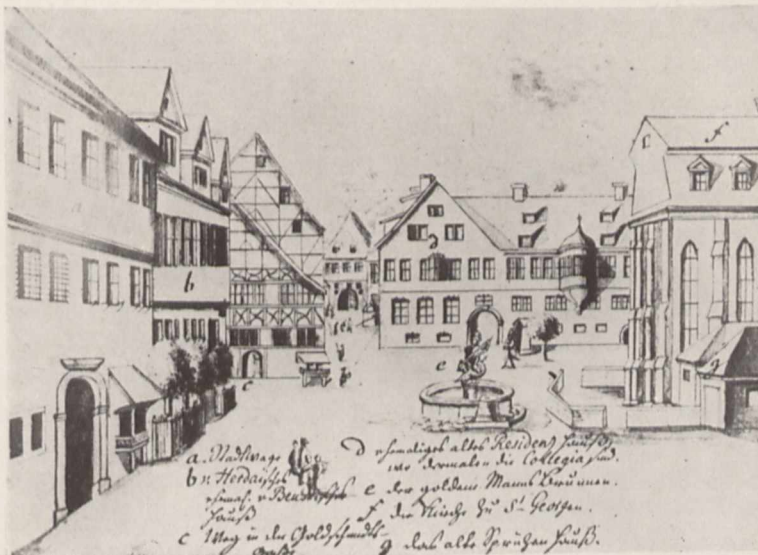 a
b
c
d
e
f
g
a. Stadtwage
b v. Herdaisches
ehmah. v. Bendaisches
Hauß
c Weg in der Goldschmidts-
Gaße
d ehmaliges altes Residenz Hauß,
wo dermalen die Collegia sind.
e der goldene Manns Brunnen.
f die Kirche zu St Georgen.
g das alte Sprützen Hauß.